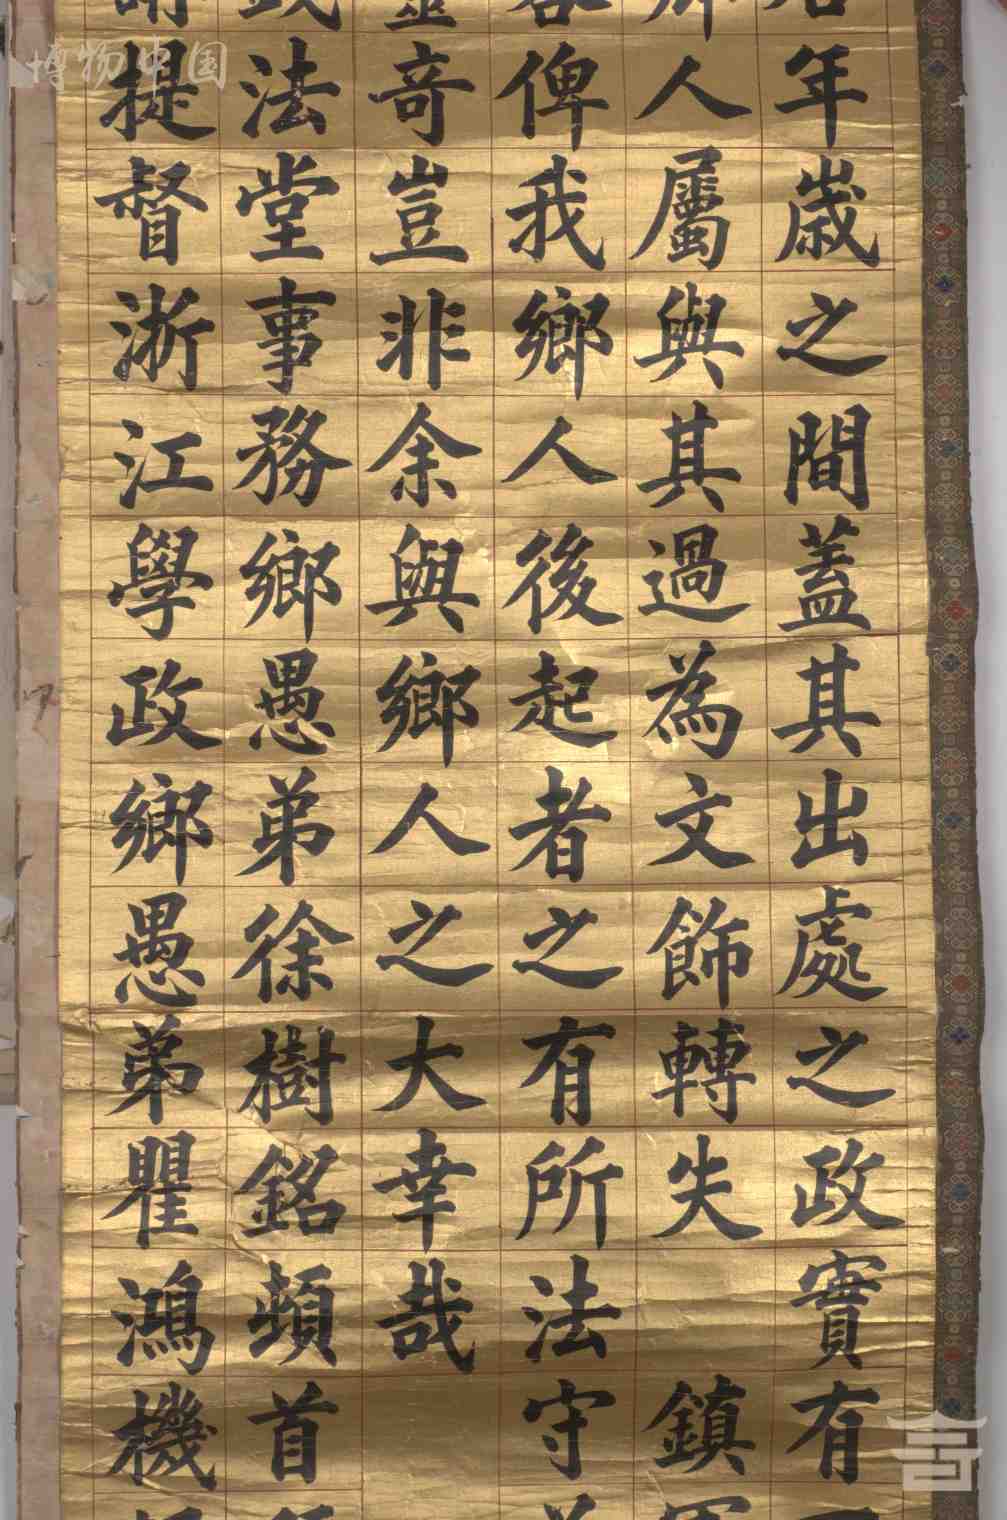 年歲之間蓋其出處之政實有
人屬與其過為文飾轉失 鎮
俾我鄉人後起者之有所法守
奇豈非余與鄉人之大幸哉
法堂事務鄉愚弟徐樹銘頓首
提督浙江學政鄉愚弟瞿鴻機
博物中国